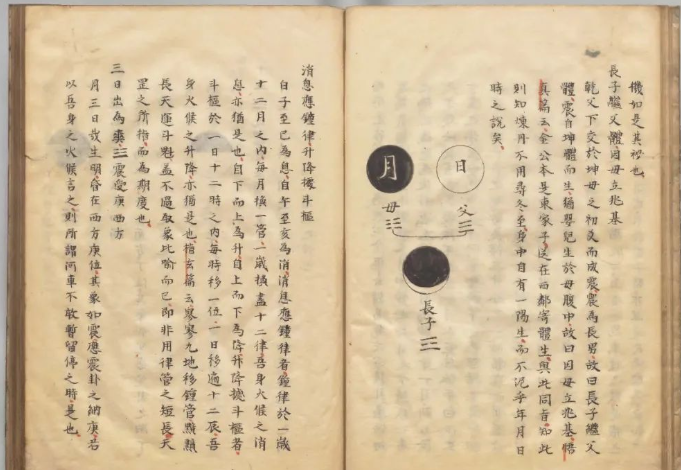 機如是其神也
長子繼父體因母立兆基
乾父下交於坤母之初爻而成震震為長男故曰長子繼父
體震自坤體而生猶嬰兒生於母腹中故曰因母立兆基悟
真篇云金公本是東家子送在西鄰寄體生與此同旨知此
則知煉丹不用尋冬至身中自有一陽生而不泥乎年月日
時之說矣
日
父☰
月
母☷
長子☳
消息應鍾律升降據斗樞
自子至巳為息自午至亥為消消息應鍾律者鍾律於一歲
十二月之內每月換一管一歲換盡十二律吾身火候之消
息亦猶是也自下而上為升自上而下為降升降據斗樞者
斗樞於一日十二時之內每時移一位一日移遍十二辰吾
身火候之升降亦猶是也指玄篇云寥寥九地移鍾管顯顯
長天運斗魁蓋不過取象比喻而已即非用律管之短長天
罡之所指而為期度也
三日出為爽☳震受庚西方
月三日哉生明昏在西方庚位其象如震應震卦之納庚若
以吾身之火候言之則所謂河車不敢暫留停之時是也